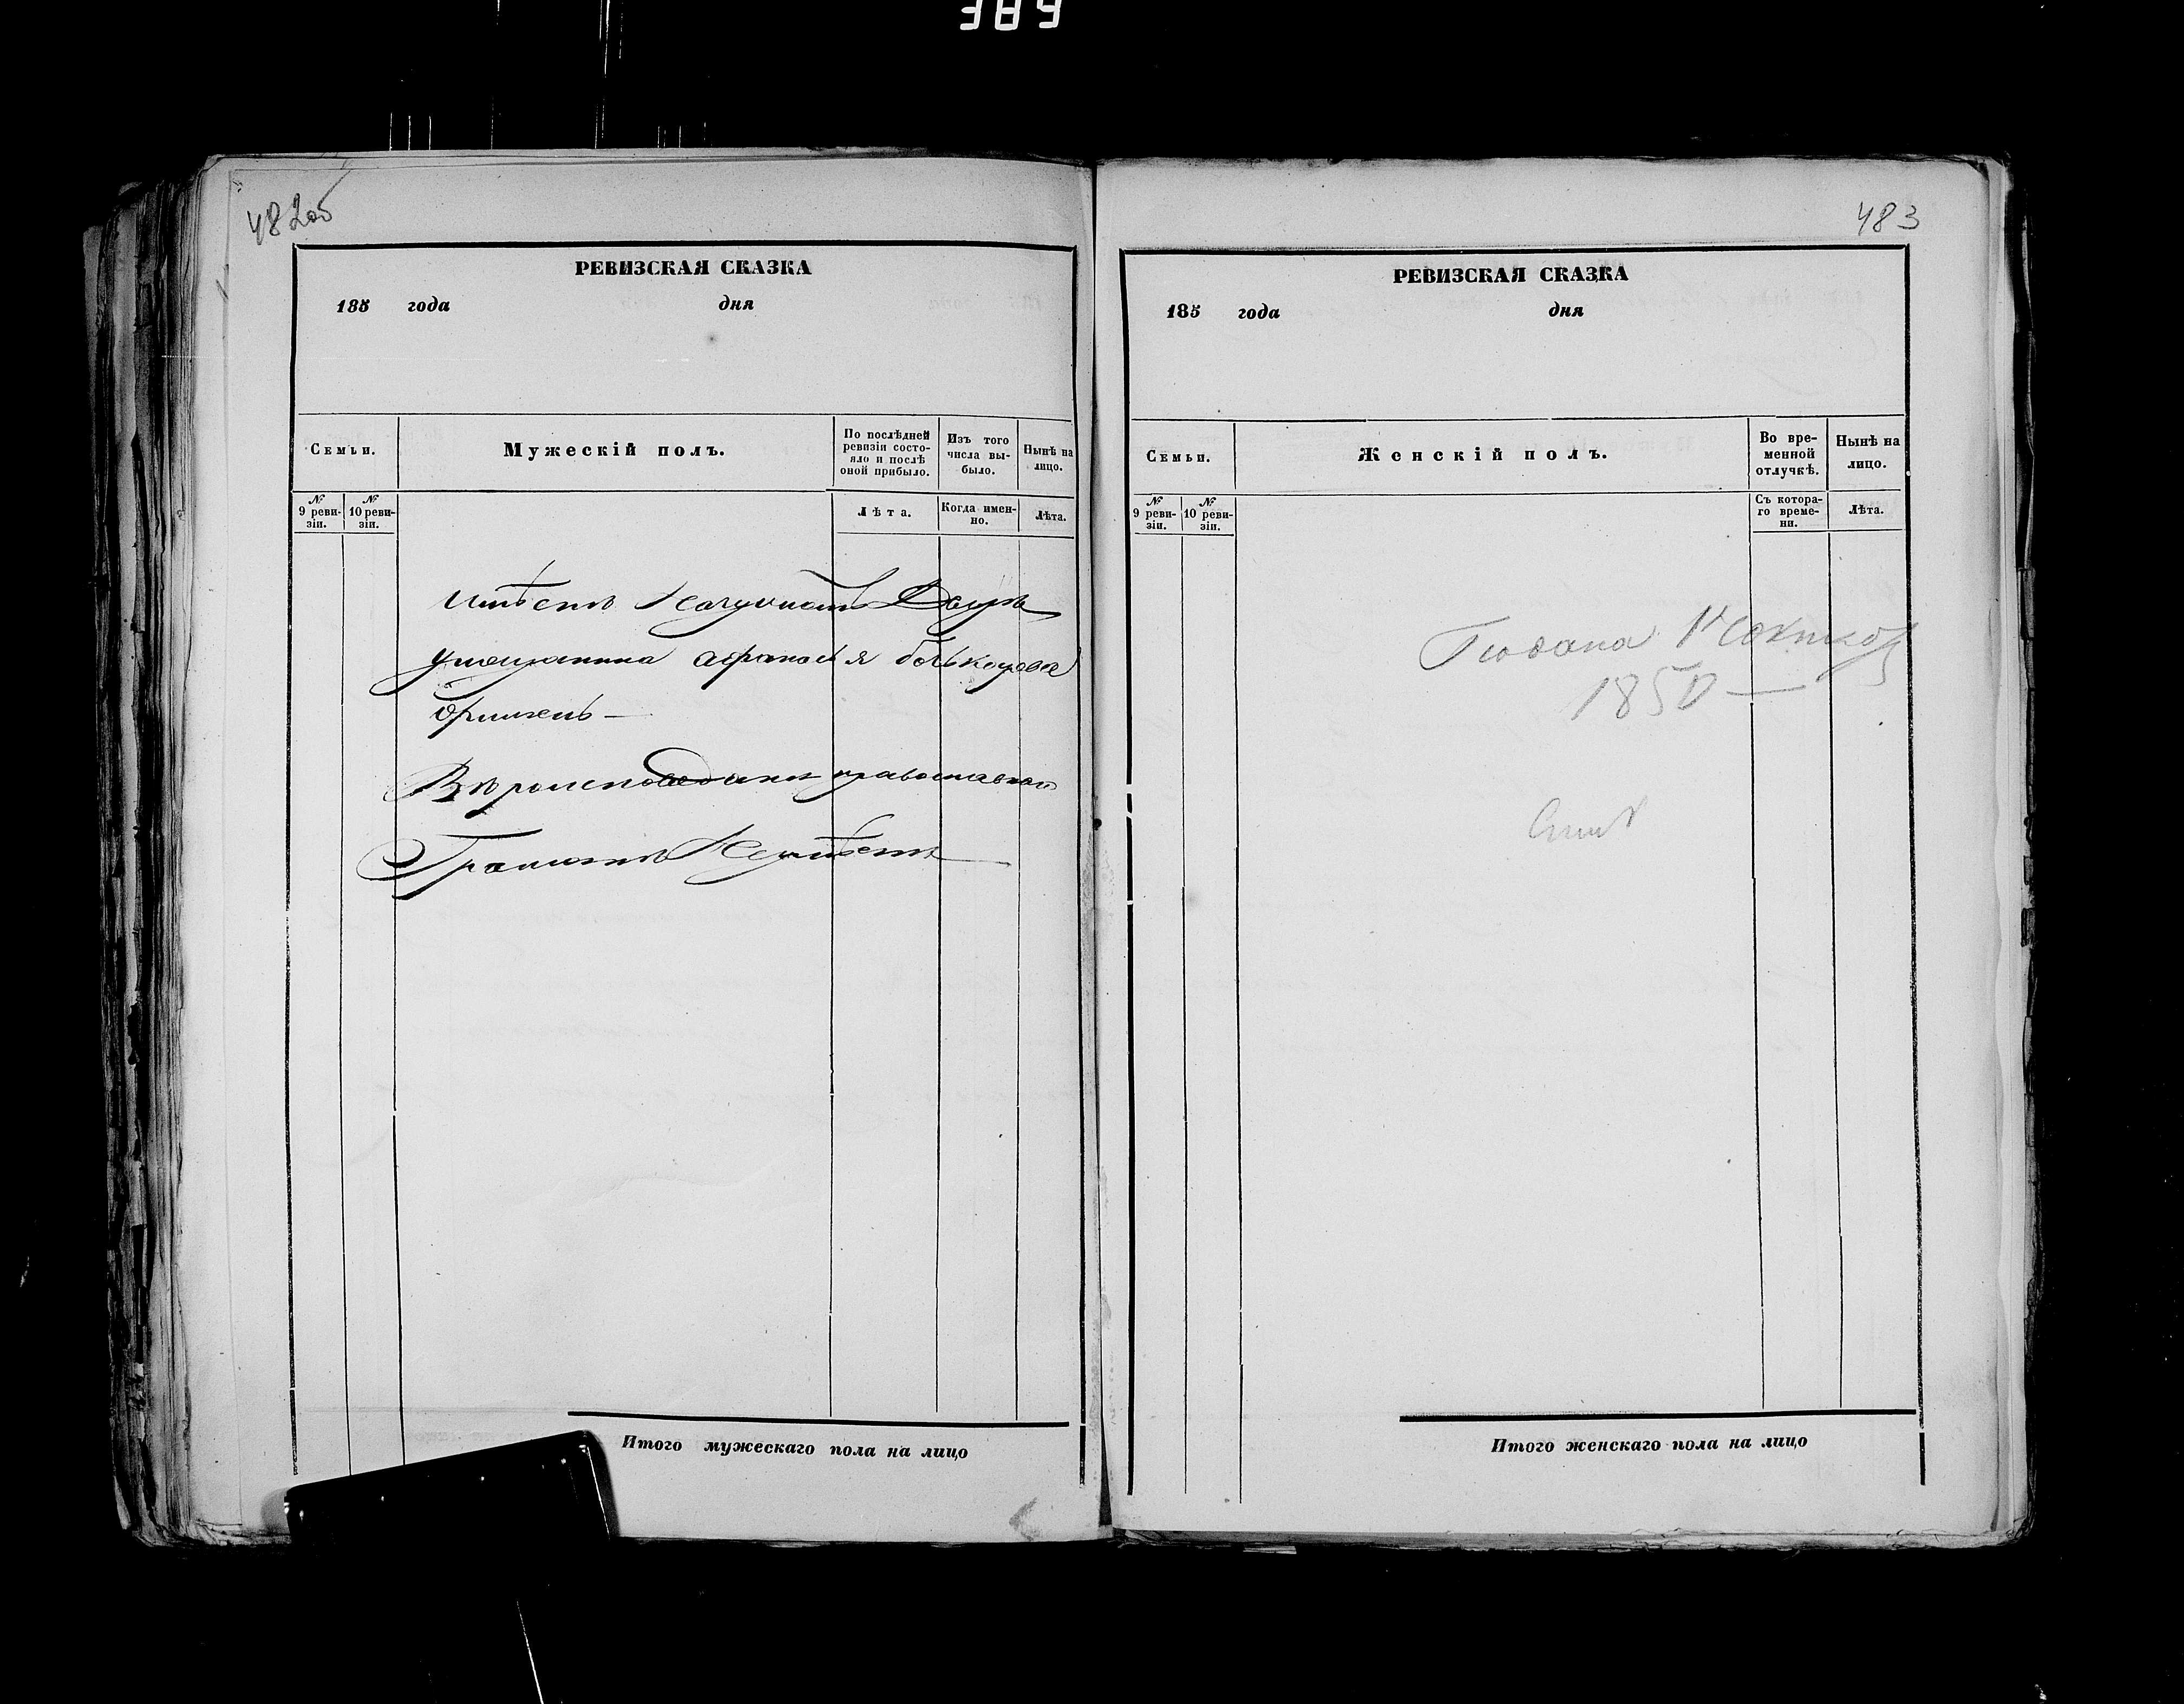 389
482об
РЕВИЗСКАЯ СКАЗКА
185 года дня
Семьи.
Мужескій полъ.
По послѣдней ревизіи состояло и послѣ оной прибыло.
Изъ того числа выбыло.
Нынѣ на лицо.
№ 9 ревизіи.
№ 10 ревизіи.
Лѣта.
Когда именно.
Лѣта.
имѣетъ
умещанина афанасья
Вѣроисповеданія православнаго
Грамоте Неумѣетъ
Итого мужескаго пола на лицо
483
РЕВИЗСКАЯ СКАЗКА
185 года дня
Семьи.
Женскій полъ.
Во временной отлучкѣ.
Нынѣ на лицо.
№ 9 ревизіи.
№ 10 ревизіи.
Съ котораго времени.
Лѣта.
1850
Итого женскаго пола на лицо